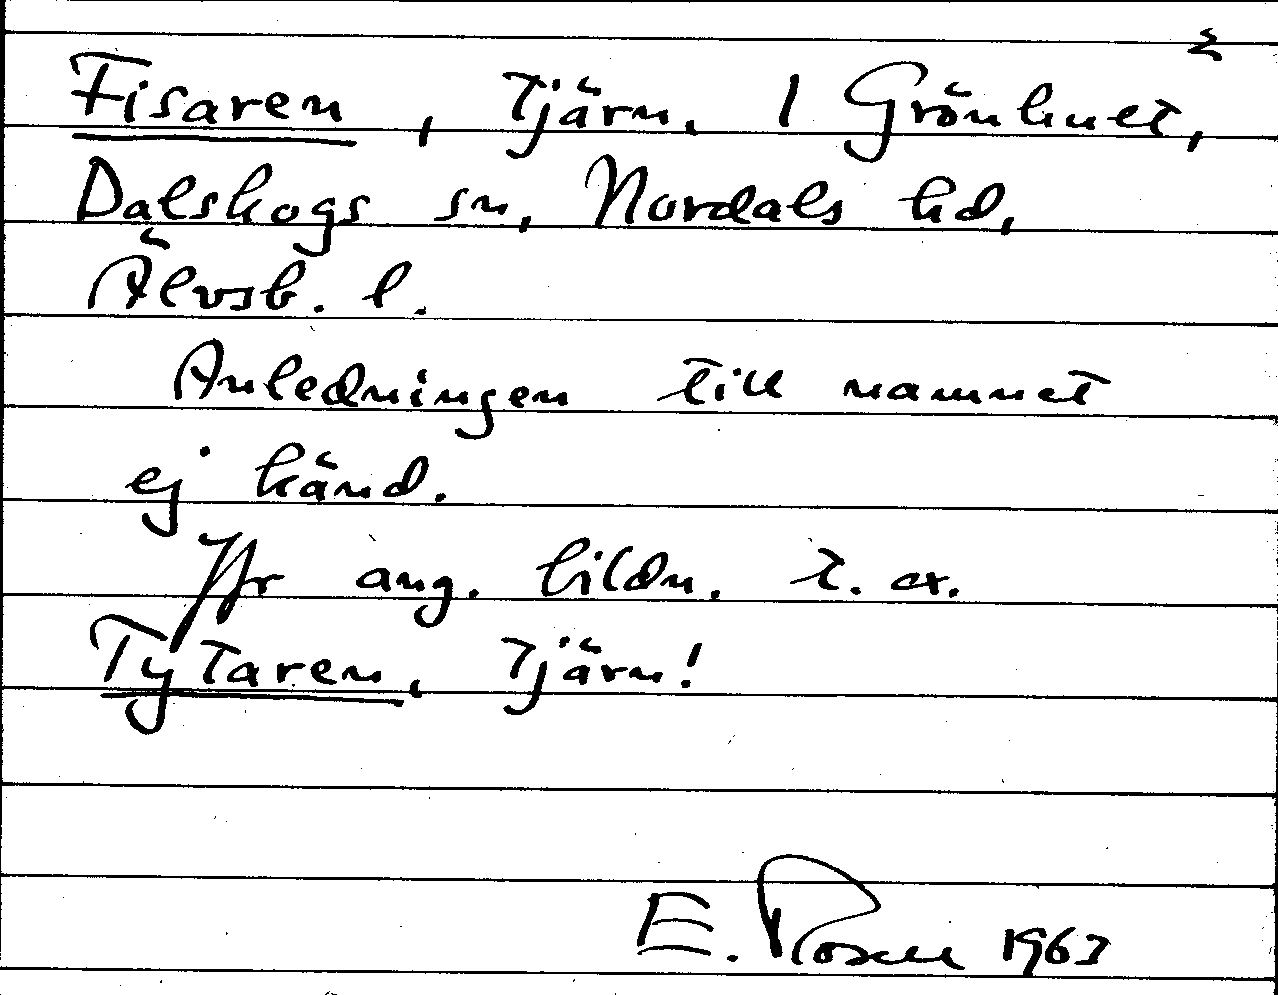 Fisaren, tjärn. I Grönhult,
Dalskogs sn, Nordals hd,
Älvsb. l.
Anledningen till namnet
ej känd.
Jfr ang. bildn. t. ex.
Tytaren, tjärn!
E. Rosen 1963